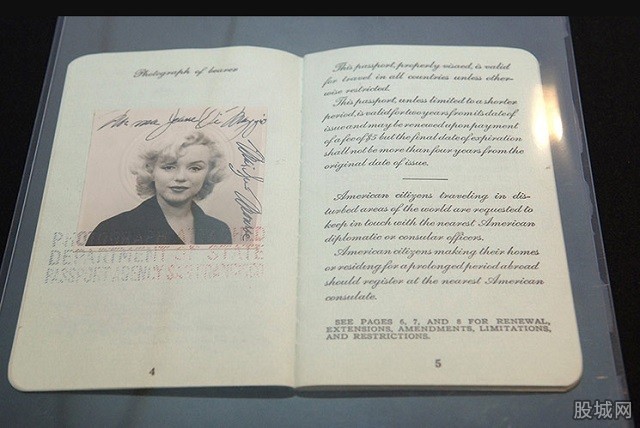 Photograph of bearer
Norma Jeane Di Maggio
Marilyn Monroe
DEPARTMENT OF STATE
PASSPORT AGENCY
4
This passport, properly visaed, is valid
for travel in all countries unless other-
wise restricted.
This passport, unless limited to a shorter
period, is valid for two years from its date of
issue and may be renewed upon payment
of a fee of $5 but the final date of expiration
shall not be more than four years from the
original date of issue.
American citizens traveling in dis-
turbed areas of the world are requested to
keep in touch with the nearest American
diplomatic or consular officers.
American citizens making their homes
or residing for a prolonged period abroad
should register at the nearest American
consulate.
SEE PAGES 6, 7, AND 8 FOR RENEWAL,
EXTENSIONS, AMENDMENTS, LIMITATIONS,
AND RESTRICTIONS.
5
股城网